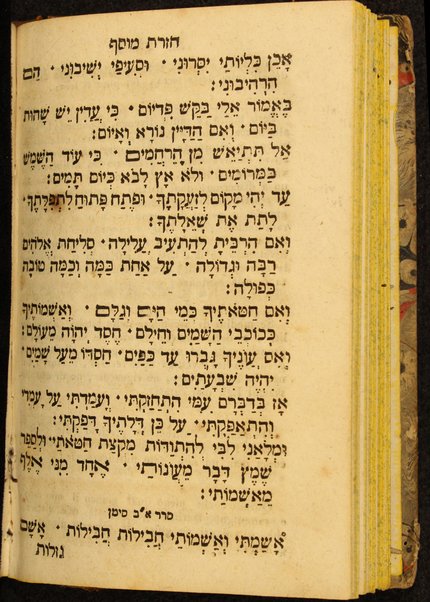 חזרת מוסף
אָכֵן כִּלְיוֹתַי יִסְּרוּנִי · וּסְעִיפַּי יְשִׁיבוּנִי · הֵם
הִרְהִיבוּנִי:
בֶּאֱמוֹר אֵלַי בַּקֵּשׁ פִּדְיוֹם · כִּי עֲדַיִן יֵשׁ שָׁהוּת
בַּיּוֹם · וְאִם הַדַּיָּין נוֹרָא וְאָיוֹם:
אַל תִּתְיָאֵשׁ מִן הָרַחֲמִים · כִּי עוֹד הַשֶּׁמֶשׁ
בַּמְּרוֹמִים · וְלֹא אָץ לָבֹא כְּיוֹם תָּמִים:
עַד יְהִי מָקוֹם לְזַעֲקָתֶךָ · וּפֶתַח פָּתוּחַ לִתְפִלָּתֶךָ ·
לָתֵת אֶת שְׁאֵלָתֶךָ:
וְאִם הִרְבֵּיתָ לְהַתְעִיב עֲלִילָה · סְלִיחַת אֱלֹהִים
רַבָּה וּגְדוֹלָה · עַל אַחַת כַּמָּה וְכַמָּה טוֹבָה
כְּפוּלָה:
וְאִם חַטֹּאתֶיךָ כְּמֵי הַיָּם וְגַלָּם · וְאַשְׁמוֹתֶיךָ
כְּכוֹכְבֵי הַשָּׁמַיִם וְחֵילָם · חֶסֶד יְהֹוָה מֵעוֹלָם:
וְאִם עֲוֹנֶיךָ גָּבְרוּ עַד כַּפַּיִם · חַסְדּוֹ מֵעַל שָׁמַיִם ·
יִהְיֶה שִׁבְעָתַיִם:
אָז בְּדַבְּרָם עִמִּי הִתְחַזַּקְתִּי · וְעָמַדְתִּי עַל עָמְדִי
וְהִתְאַפַּקְתִּי · עַל כֵּן דְּלָתֶיךָ דָּפַקְתִּי:
וּמְלָאַנִי לִבִּי לְהִתְוַדּוֹת מִקְצַת חַטֹּאתַי · וּלְסַפֵּר
שֶׁמֶץ דָּבָר מֵעֲוֹנוֹתַי · אֶחָד מִנִּי אֶלֶף
מֵאַשְׁמוֹתַי:
סדר א״ב סימן
אָשַׁמְתִּי וְאַשְׁמוֹתַי חֲבִילוֹת חֲבִילוֹת · אָשָׁם
גולות